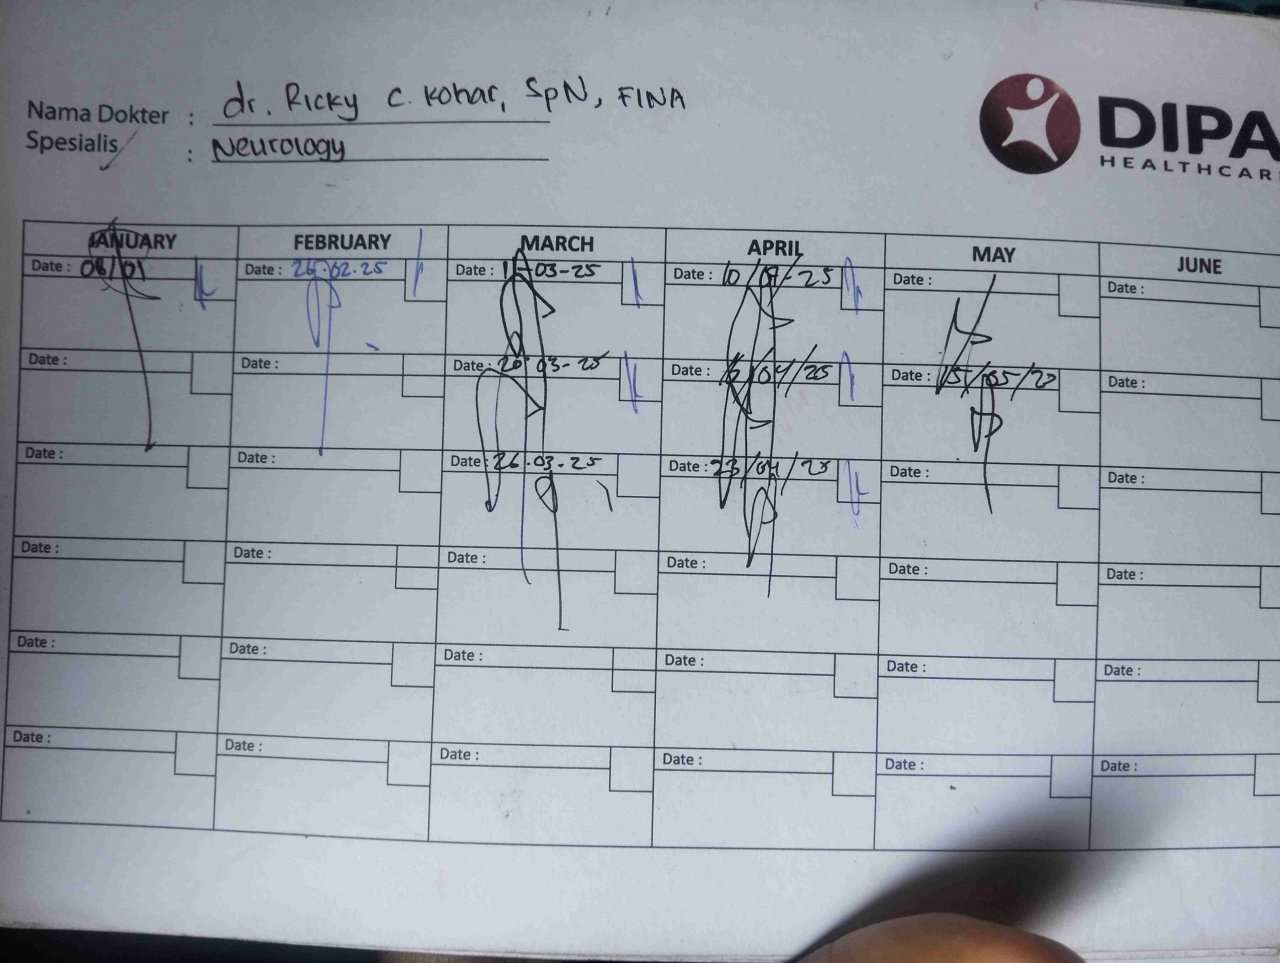 Nama Dokter : dr. Ricky C. Kohar, SpN, FINA
Spesialis : Neurology
DIPA
HEALTHCAR
JANUARY FEBRUARY MARCH APRIL MAY JUNE
Date : 08/01 Date : 26.02.25 Date : -03-25 Date : 10/04-25 Date : Date :
Date : Date : Date : 20-03-25 Date : /04/25 Date : 15/05/2 Date :
Date : Date : Date : 26.03.25 Date : 23/04/25 Date : Date :
Date : Date : Date : Date : Date : Date :
Date : Date : Date : Date : Date : Date :
Date : Date : Date : Date : Date : Date :